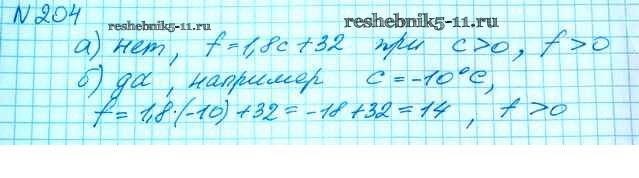 N 204 reshebnik5-11.ru reshebnik5-11.ru
а) нет, f = 1,8c + 32 при c > 0, f > 0
б) да, например c = -10°C,
f = 1,8·(-10) + 32 = -18 + 32 = 14, f > 0